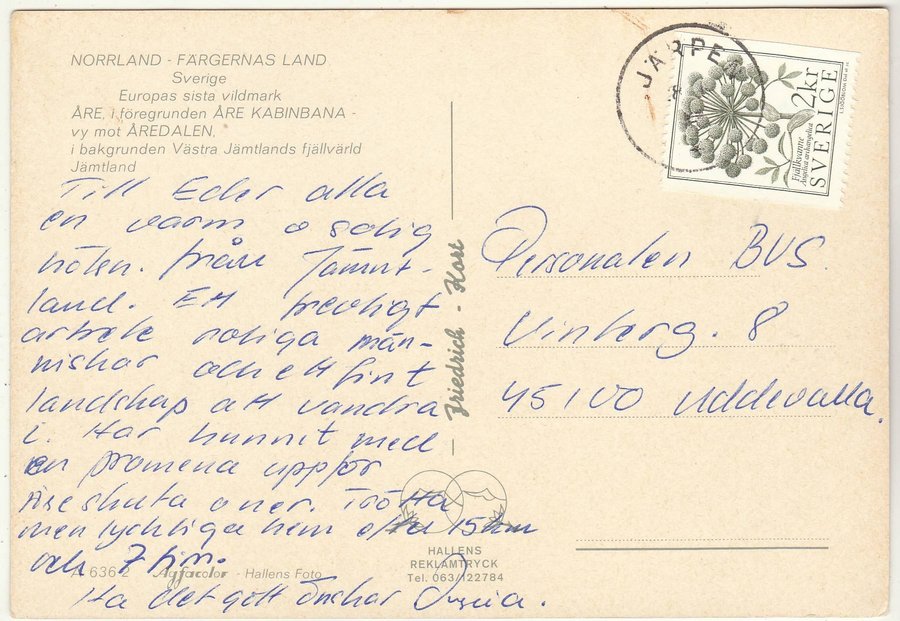 NORRLAND - FÄRGERNAS LAND
Sverige
Europas sista vildmark
ÅRE, i föregrunden ÅRE KABINBANA -
vy mot ÅREDALEN,
i bakgrunden Västra Jämtlands fjällvärld
Jämtland
Till Eder alla
en varm o solig
hälsn. från Jämt-
land. Ett trevligt
arbete roliga män-
niskor och ett fint
landskap att vandra
i. Har hunnit med
en promena uppför
Åreskuta o ner. Trötta
men lyckliga hem efter 15 km
och 7 tim.
Ha det gött önskar
A 636 2 Agfacolor - Hallens Foto
Friedrich - Kort
HALLENS
REKLAMTRYCK
Tel. 063/122784
JÄRPEN
2kr
SVERIGE
Fjällkvanne
Angelica archangelica
Personalen BVS.
Vinterg. 8
45100 Uddevalla.